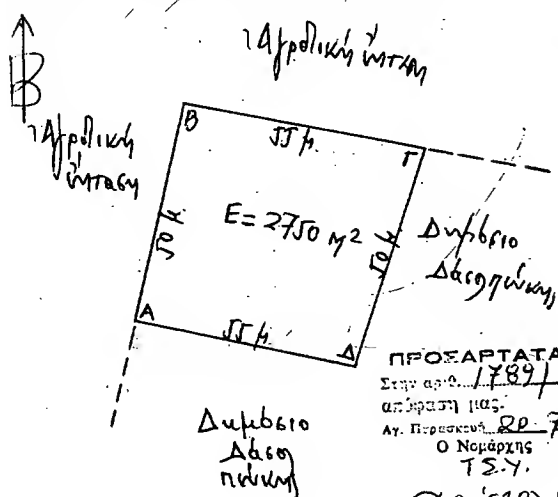 Αγροτική έκταση
Β
Αγροτική
έκταση
Β
55 μ.
Γ
50 μ
Ε = 2750 μ²
50 μ
Δημόσιο
Δάσος πεύκης
Α
55 μ
Δ
Δημόσιο
Δάσος
πεύκης
ΠΡΟΣΑΡΤΑΤΑ
Στην αρ.θ. 1789/
απόφαση μας.
Αγ. Παρασκευή 20.7
Ο Νομάρχης
Τ.Σ.Υ.